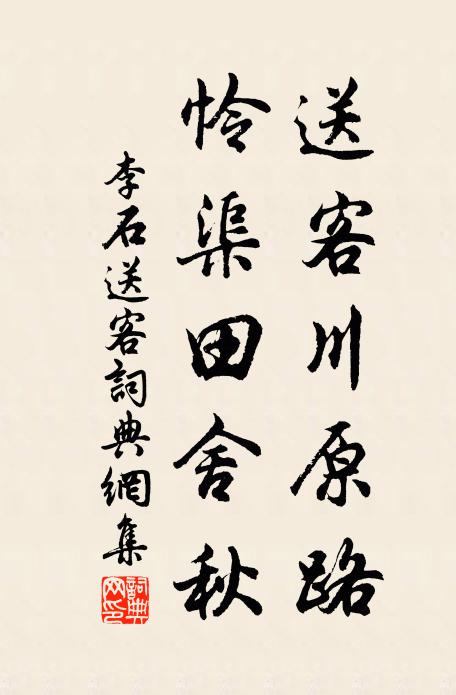 送客川原路
怜渠田舍秋
李石送客詞典網集
詞典网印